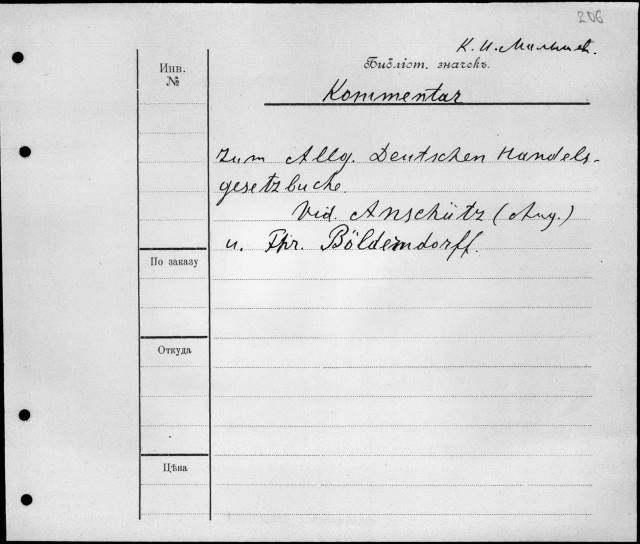 206
К. И. Малышев.
Библіот. значекъ.
Инв.
№
Kommentar
zum Allg. Deutschen Handels-
gesetzbuche
Vid. Anschütz (Aug.)
u. Fhr. Böldemdorff.
По заказу
Откуда
Цѣна